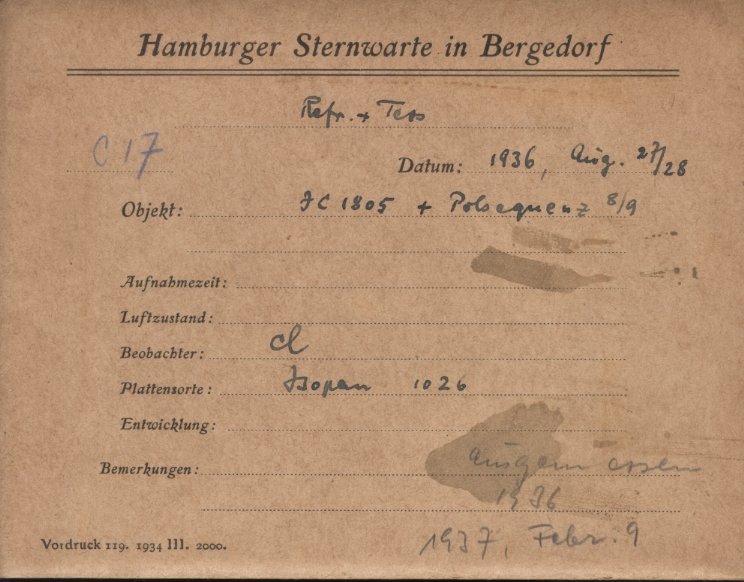 Hamburger Sternwarte in Bergedorf
Refr. + Tess
C 17
Datum: 1936, Aug. 27/28
Objekt: JC 1805 + Polsequenz 8/9
Aufnahmezeit:
Luftzustand:
Beobachter:
Plattensorte: Isopan 1026
Entwicklung:
Bemerkungen: ausgemessen
1936
1937, Febr. 9
Vordruck 119. 1934 III. 2000.